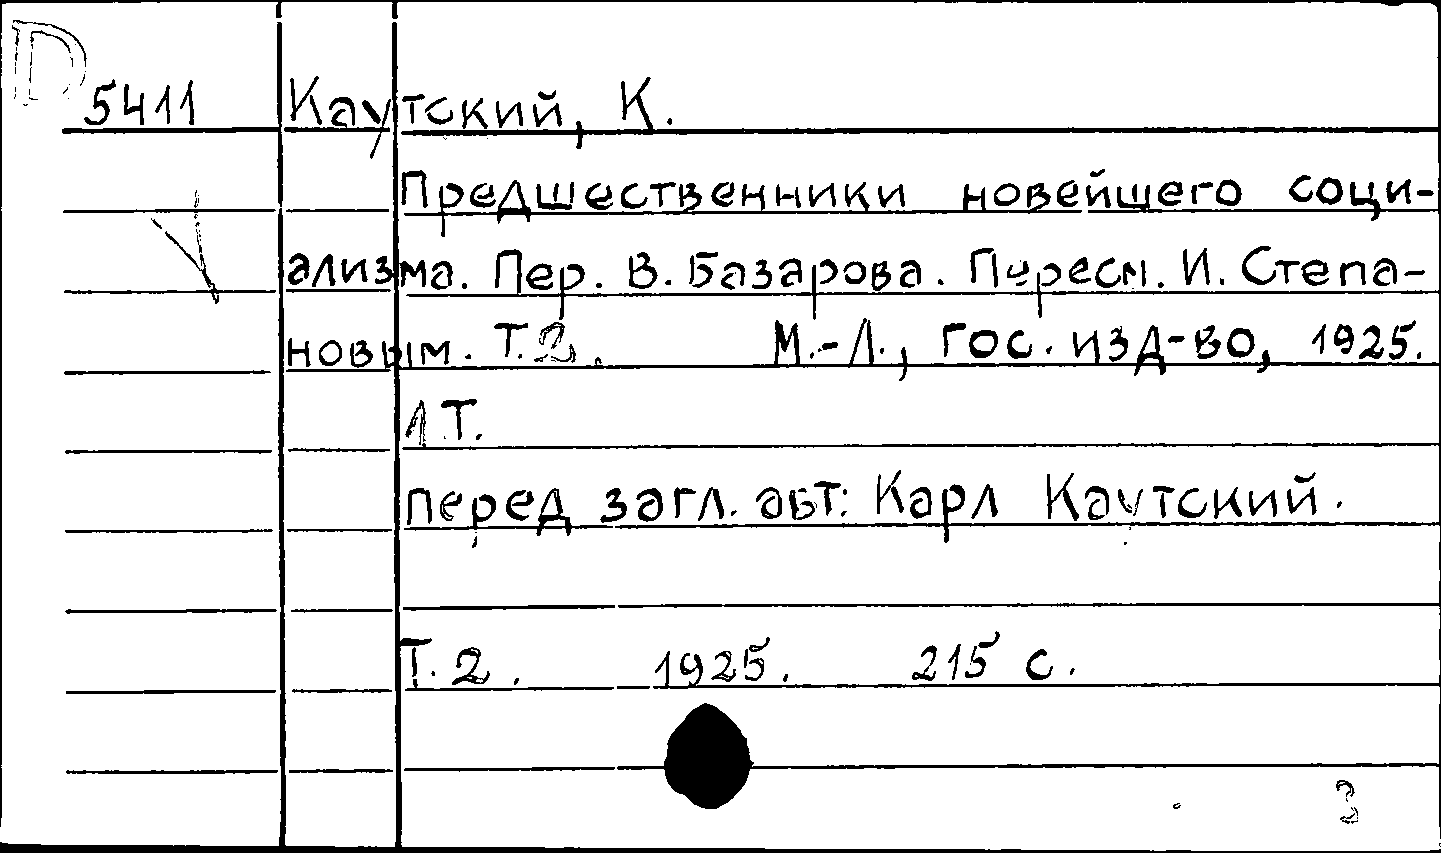 D
5411 Каутский, К.
Предшественники новейшего соци-
ализма. Пер. В. Базарова. Пересм. И. Степа-
новым. Т.2. М.-Л., гос. изд-во, 1925.
1 Т.
перед загл. авт: Карл Каутский.
Т.2. 1925. 215 с.
3